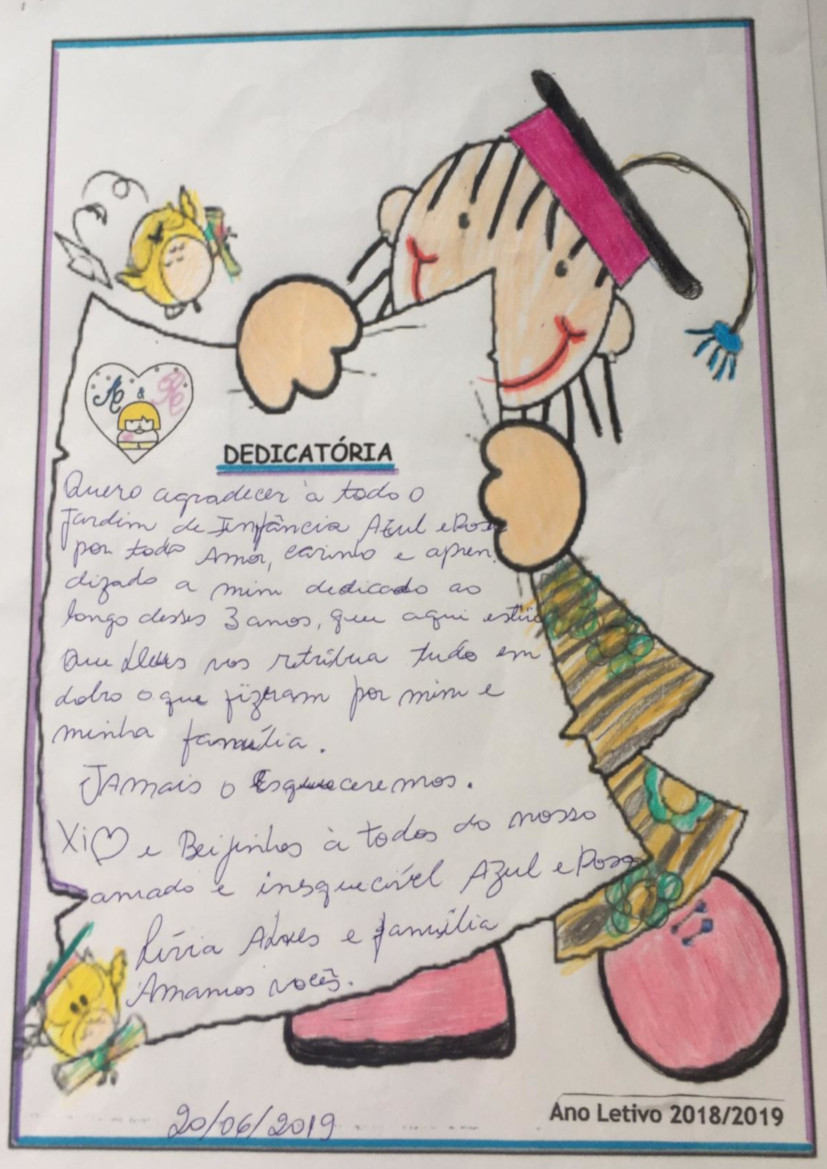 A & R
DEDICATÓRIA
Quero agradecer à todo o
Jardim de Infância Azul e Rosa
por todo Amor, carinho e apren
dizado a mim dedicado ao
longo desses 3 anos, que aqui estive
Que Deus vos retribua tudo em
dobro o que fizeram por mim e
minha família.
Jamais o Esqueceremos.
Xi♡ e Beijinhos à todos do nosso
amado e inesquecível Azul e Rosa
Lívia Alves e família
Amamos vocês.
20/06/2019
Ano Letivo 2018/2019